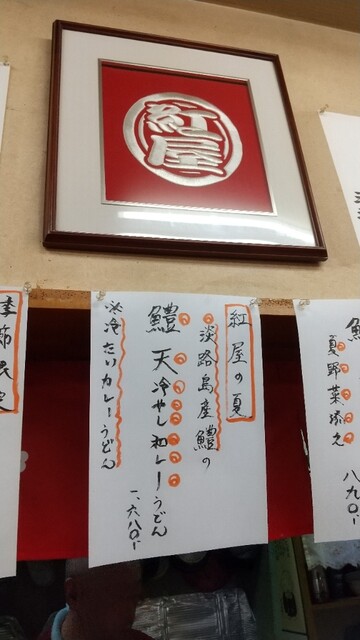 紅屋
紅屋の夏
淡路島産鱧の
鱧天冷やしカレーうどん
冷たいカレーうどん
一、六八〇-
季節限定
夏野菜添え
八九〇-